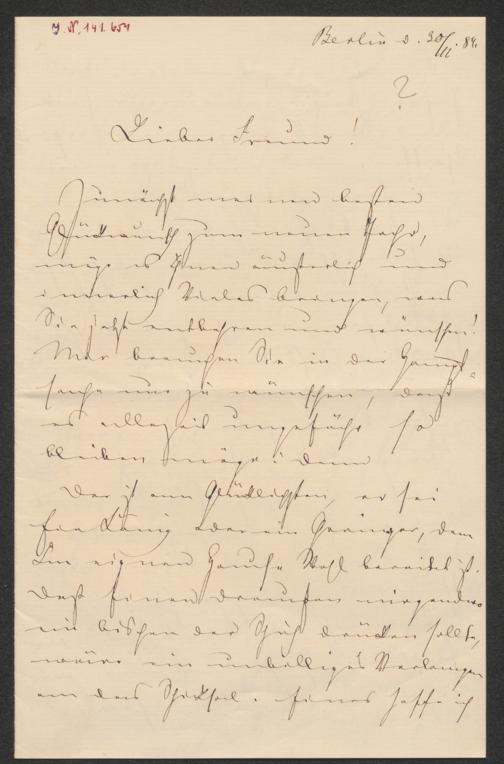 J. N. 141.654
Berlin d. 30/11. 84.
?
Lieber Freund!
Zunächst meinen besten
Glückwunsch zum neuen Jahr,
möge es Ihnen äußerlich und
innerlich Vieles bringen, was
Sie jetzt entbehren und wünschen!
Mir brauchen Sie in der Haupt-
sache nur zu wünschen, daß
es allezeit ungefähr so
bleiben möge: denn
Der ist am Glücklichsten, er sei
ein König oder ein Geringer, dem
Im eignen Hause Wohl bereitet ist.
Daß Einen draußen nirgendwo
ein bischen der Schuh drücken sollte,
wäre ein unbilliges Verlangen
an das Schicksal. Eines hoffe ich